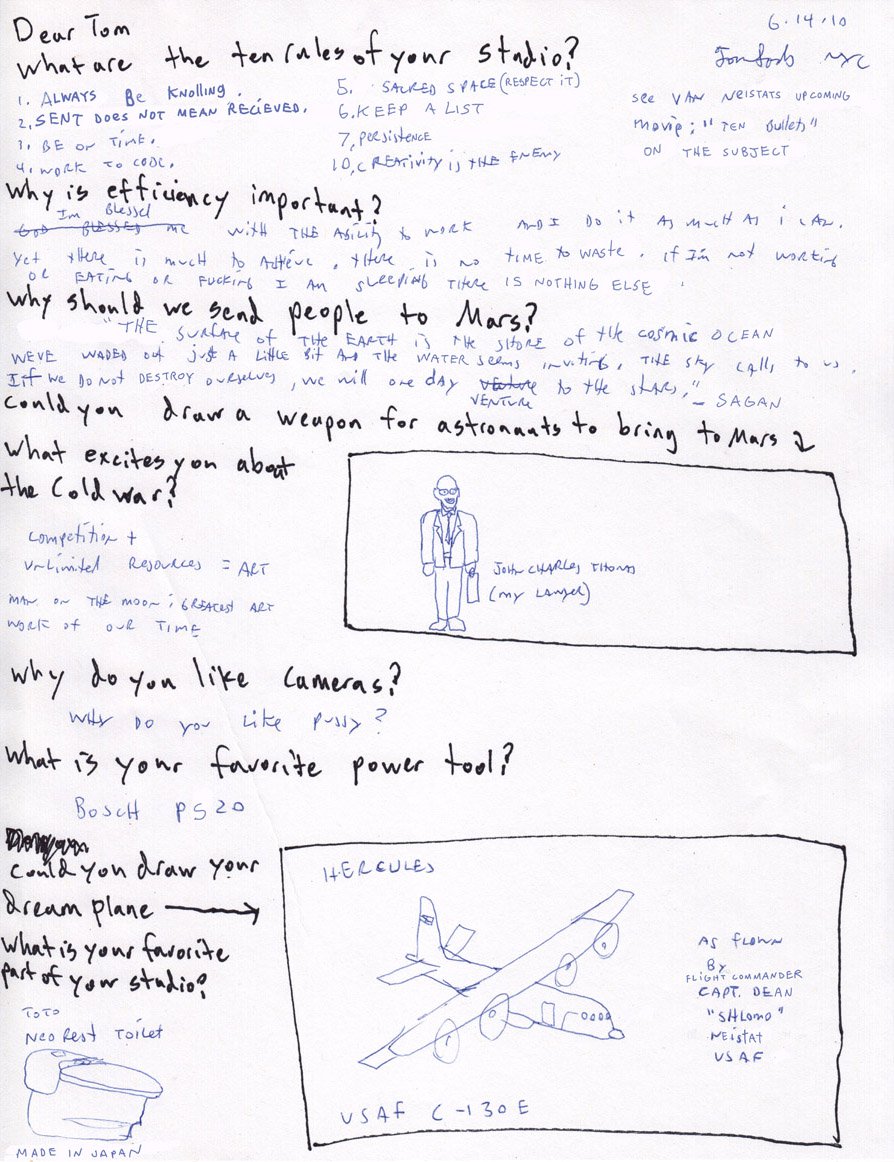 6.14.10
Dear Tom
What are the ten rules of your studio?
Tom Sachs NYC
1. ALWAYS Be KNOLLING.
2. SENT DOES NOT MEAN RECIEVED.
3. BE ON TIME.
4. WORK TO CODE.
5. SACRED SPACE (RESPECT IT)
6. KEEP A LIST
7. Persistence
10. CREATIVITY is THE ENEMY
see VAN NEISTATS UPCOMING
movie; "TEN Bullets"
ON THE SUBJECT
Why is efficiency important?
Im Blessed
GOD BLESSED me with THE ABility to work AND I Do it As Much As i CAN.
Yet there is much to Achieve. there is no TIME to WASTE. if I'm not working
OR EATING OR FUCKING I AM SLEEPING THERE IS NOTHING ELSE.
Why should we send people to Mars?
"THE SURFACE OF THE EARTH is the SHORE of the COSMIC OCEAN
WEVE WADED out just A little Bit And THE WATER seems inviting. THE sky CALLS to us.
If we do not DESTROY ourselves, we will one day venture to the STARS."
VENTURE
– SAGAN
Could you draw a weapon for astronauts to bring to Mars
What excites you about
the Cold war?
Competition +
UNLIMITED RESOURCES = ART
MAN ON THE MOON; GREATEST ART
WORK OF OUR TIME
JOHN CHARLES THOMAS
(my LAWYER)
Why do you like Cameras?
WHY DO you like pussy?
What is your favorite power tool?
BOSCH PS20
Could you draw your
dream plane
What is your favorite
part of your studio?
HERCULES
AS FLOWN
By
FLIGHT COMMANDER
CAPT. DEAN
"SHLOMO"
NEISTAT
USAF
USAF C-130E
TOTO
Neo Rest Toilet
MADE IN JAPAN